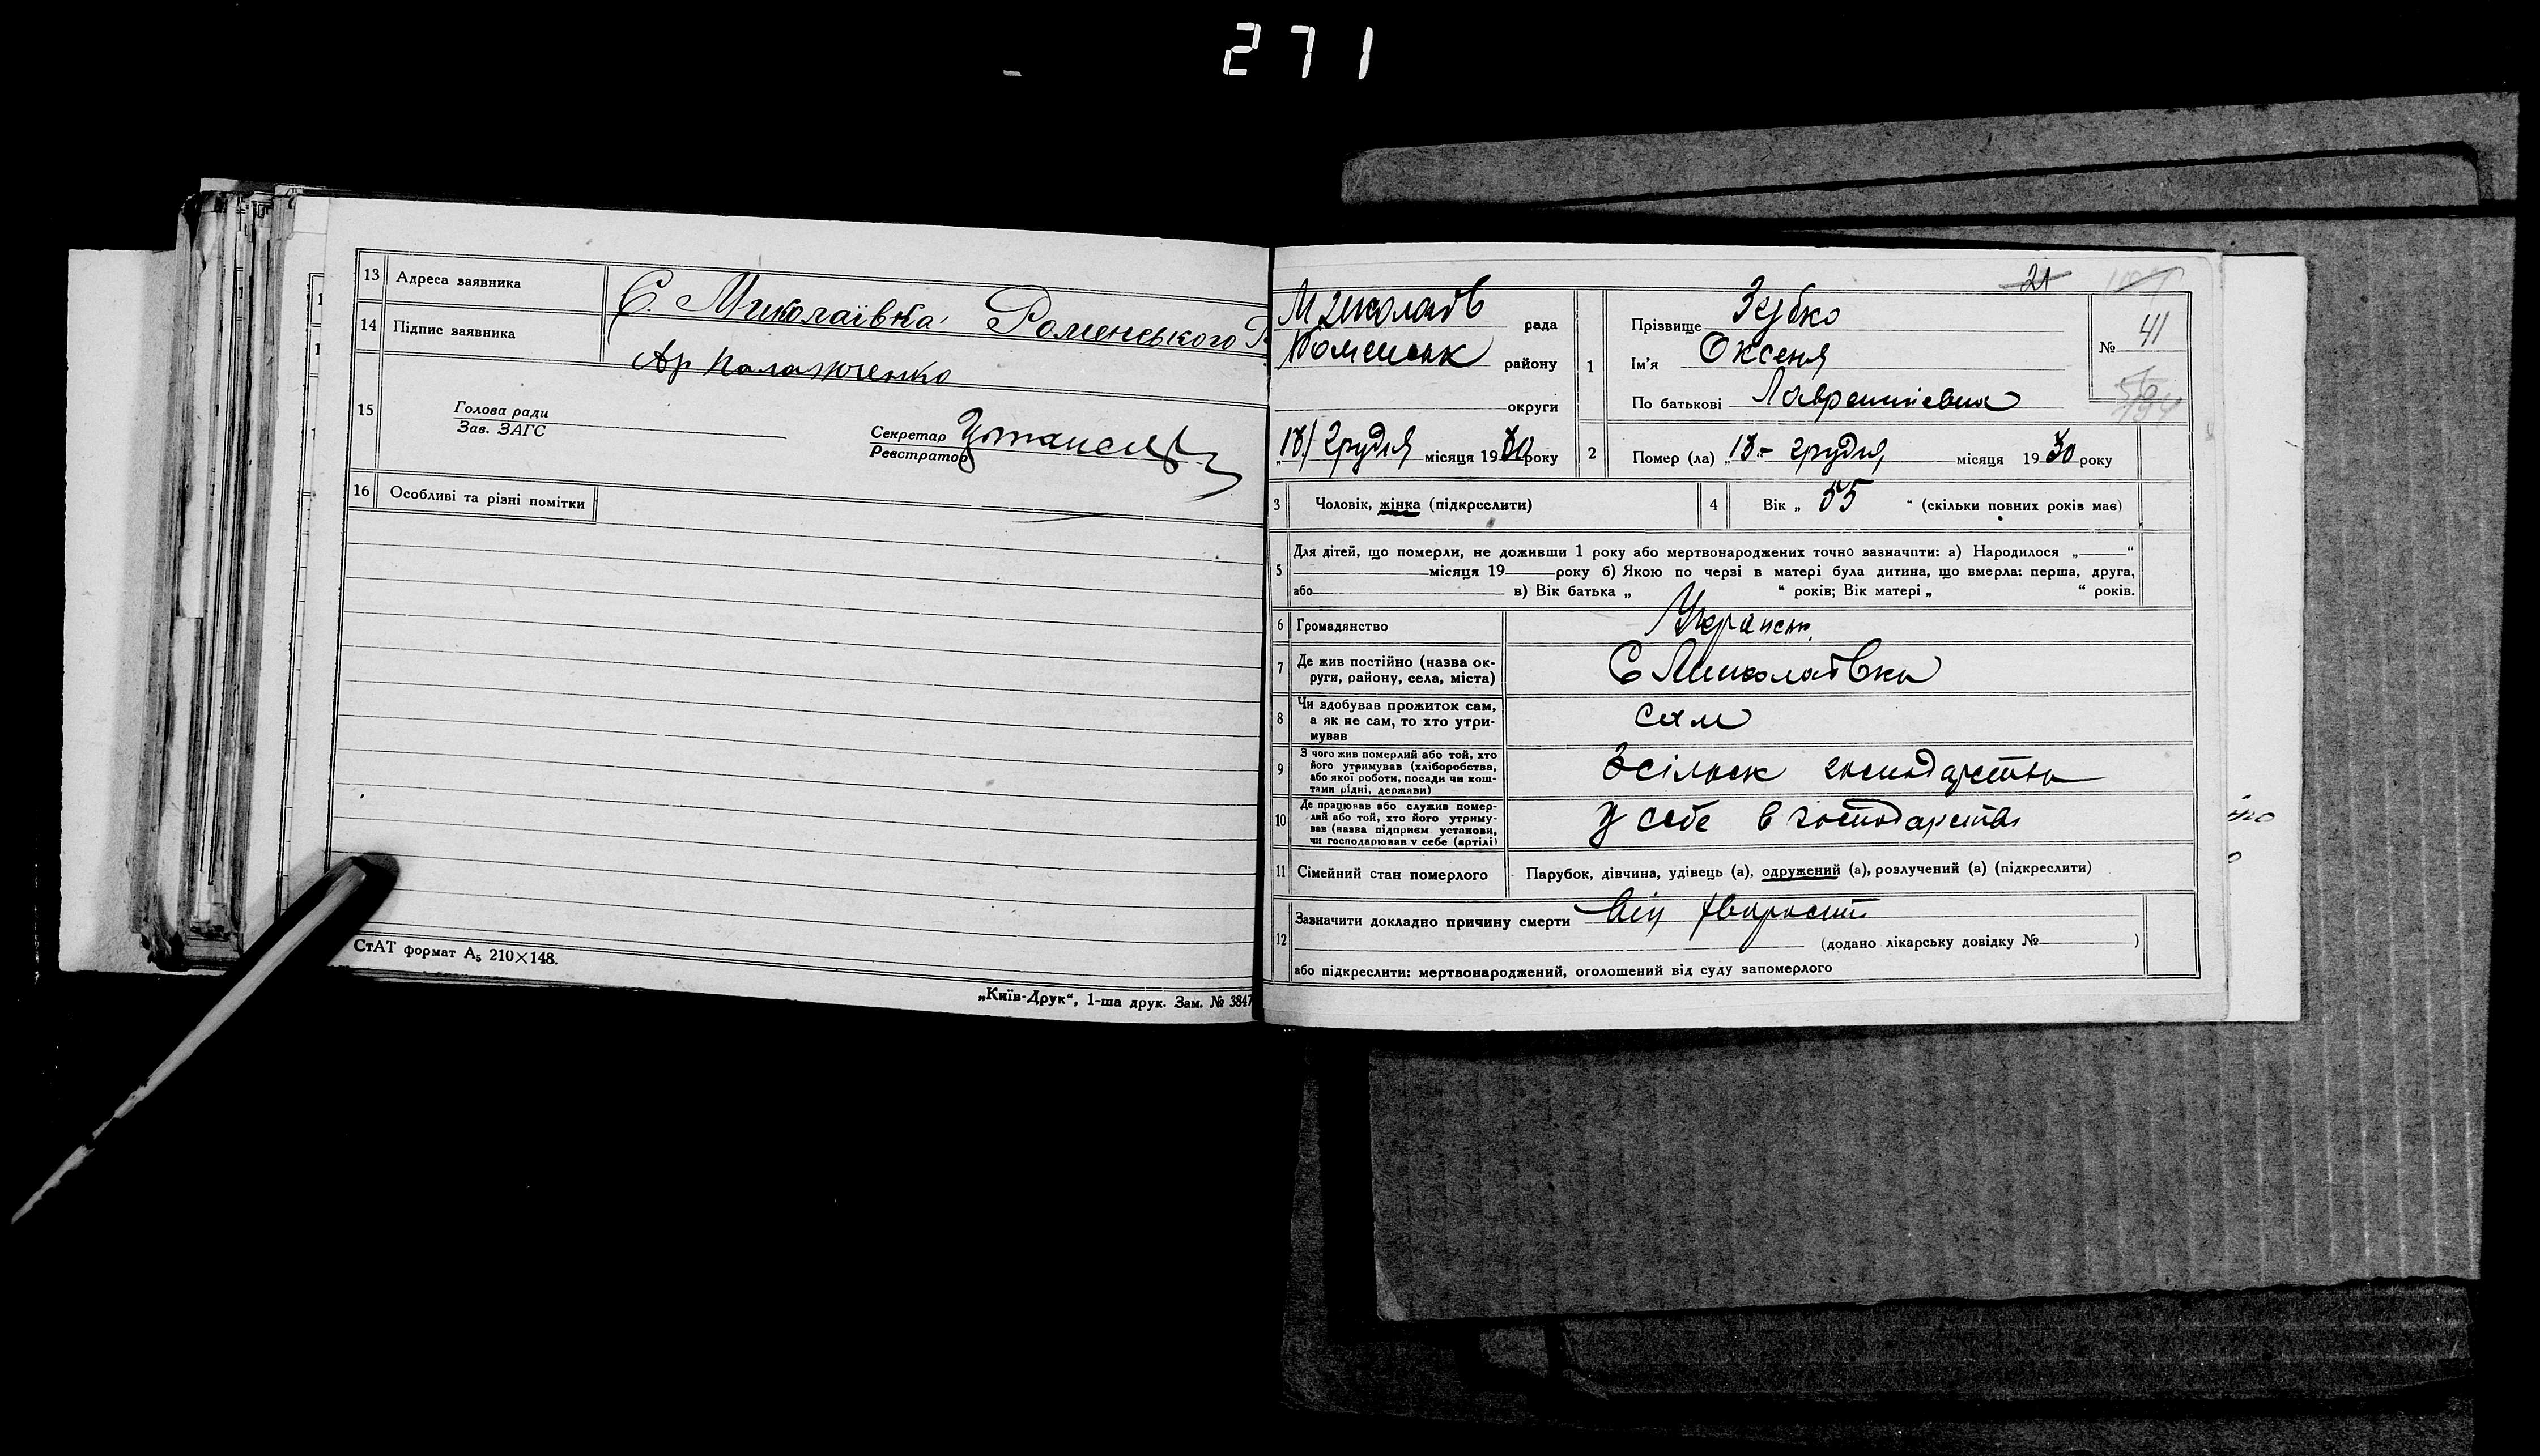 271
13 Адреса заявника С. Миколаївка Роменського Р
14 Підпис заявника Ар Паламоченко
15 Голова ради
Зав. ЗАГС
Секретар
Реєстратор
16 Особливі та різні помітки
СтАТ формат А₅ 210×148.
„Київ-Друк“, 1-ша друк. Зам. № 3847
Миколаїв рада
Роменськ району
округи
„18/ грудня місяця 1930 року
21
1 Прізвище Зубко
Ім'я Оксеня
По батькові Лаврентієвна
№ 41
2 Помер (ла) „13 - грудня місяця 1930 року
3 Чоловік, жінка (підкреслити)
4 Вік „ 55 “ (скільки повних років має)
5 Для дітей, що померли, не доживши 1 року або мертвонароджених точно зазначити: а) Народилося „ “
місяця 19 року б) Якою по черзі в матері була дитина, що вмерла: перша, друга,
або в) Вік батька „ “ років; Вік матері „ “ років.
6 Громадянство Українськ
7 Де жив постійно (назва ок-
руги, району, села, міста) С Миколаївка
8 Чи здобував прожиток сам,
а як не сам, то хто утри-
мував сам
9 З чого жив померлий або той, хто
його утримував (хліборобства,
або якої роботи, посади чи кош-
тами рідні, держави) Зсільск господарства
10 Де працював або служив помер-
лий або той, хто його утриму-
вав (назва підприєм установи,
чи господарював у себе (артілі) У себе в господарстві
11 Сімейний стан померлого Парубок, дівчина, удівець (а), одружений (а), розлучений (а) (підкреслити)
12 Зазначити докладно причину смерти
(додано лікарську довідку № )
або підкреслити: мертвонароджений, оголошений від суду запомерлого